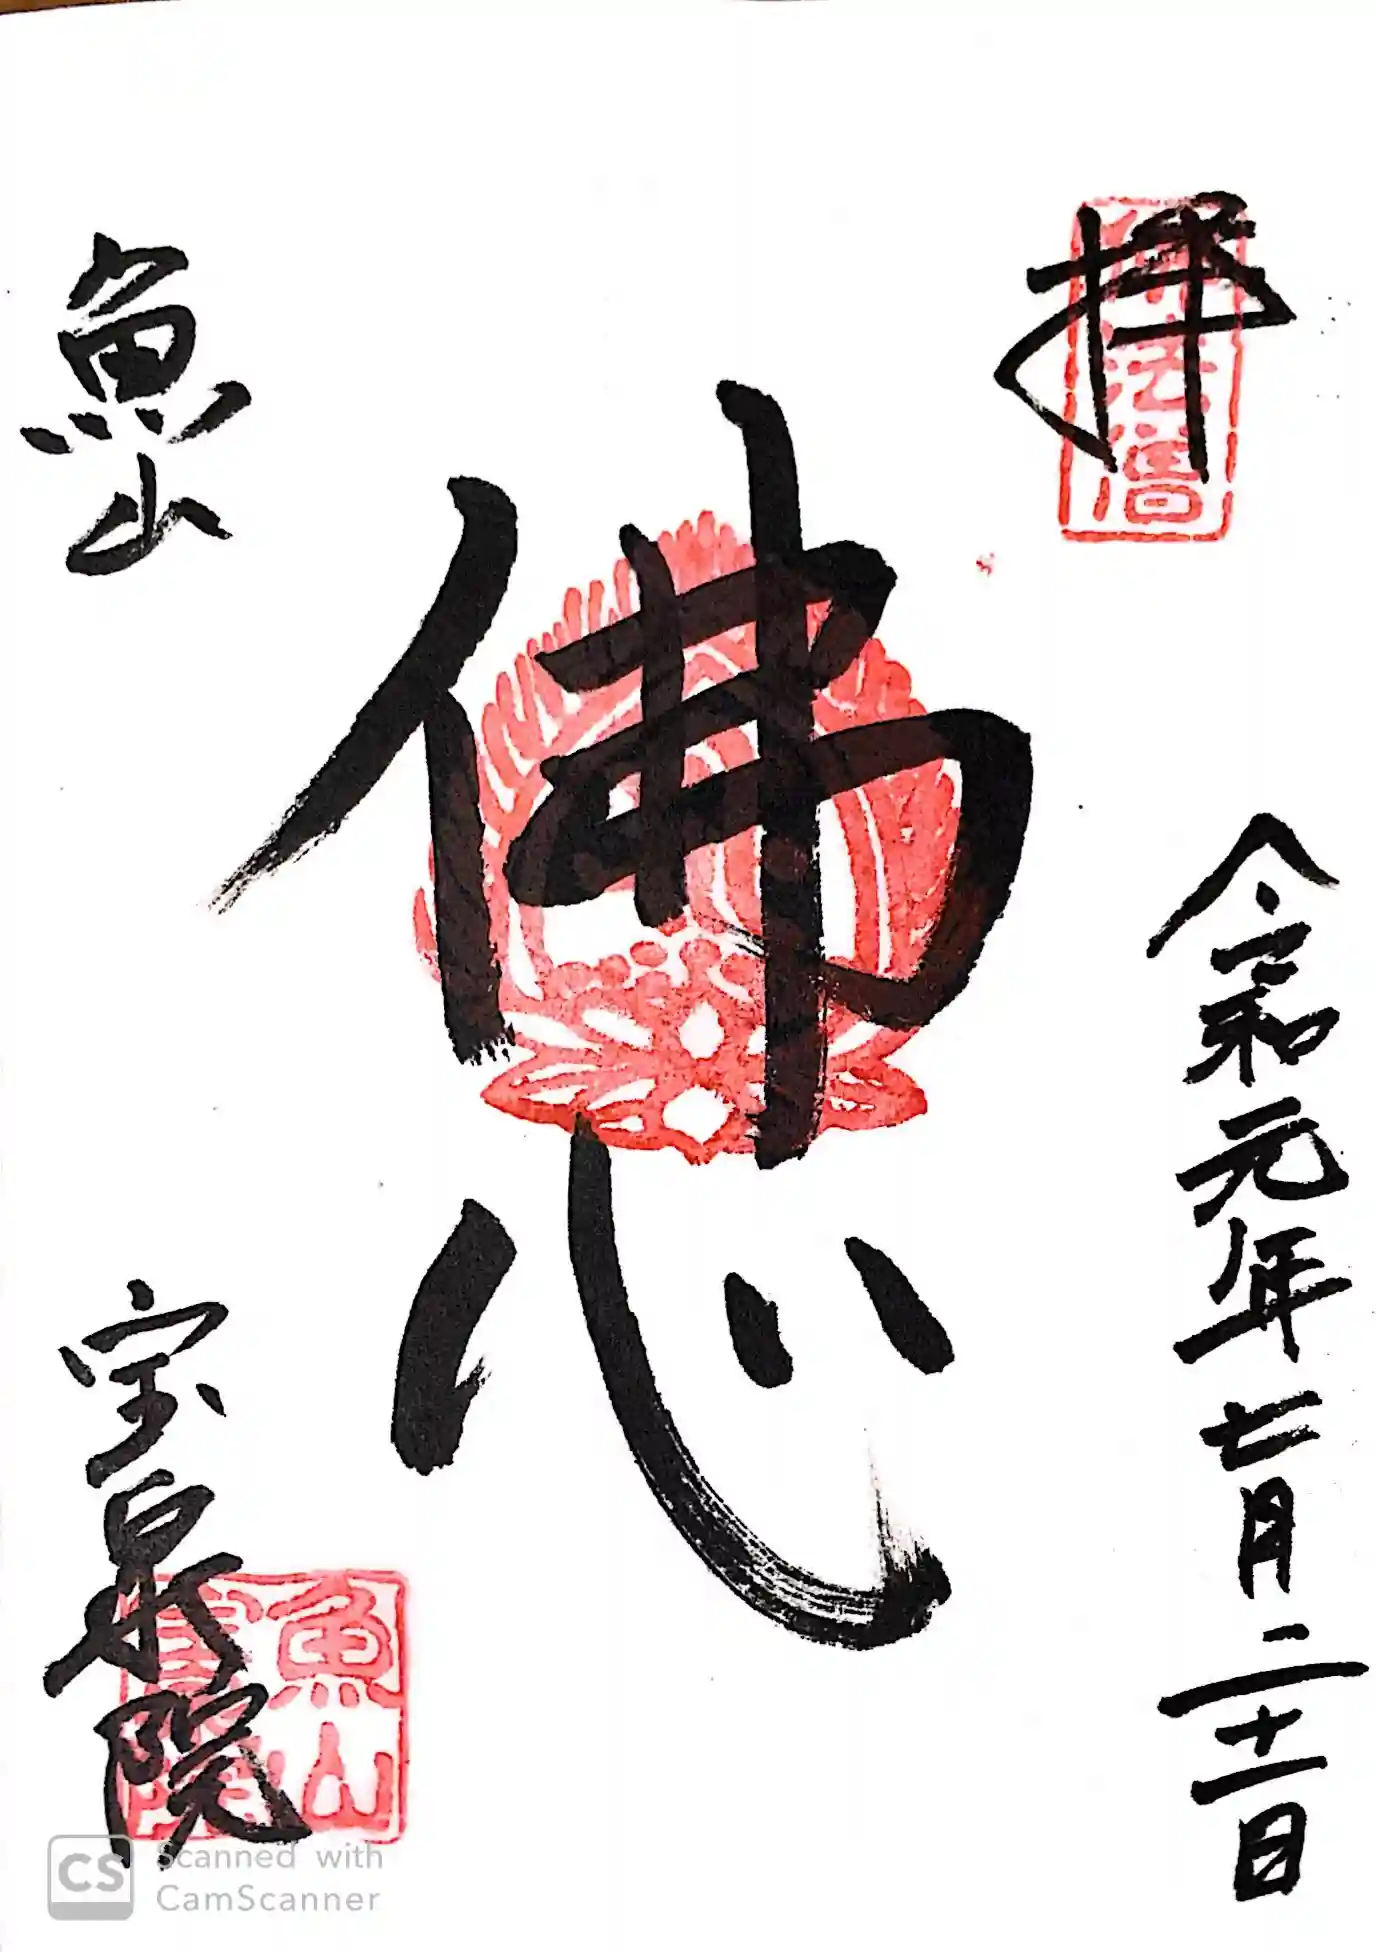 拝
佛法僧
令和元年七月二十一日
佛心
魚山
宝泉院
魚山
Scanned with
CamScanner